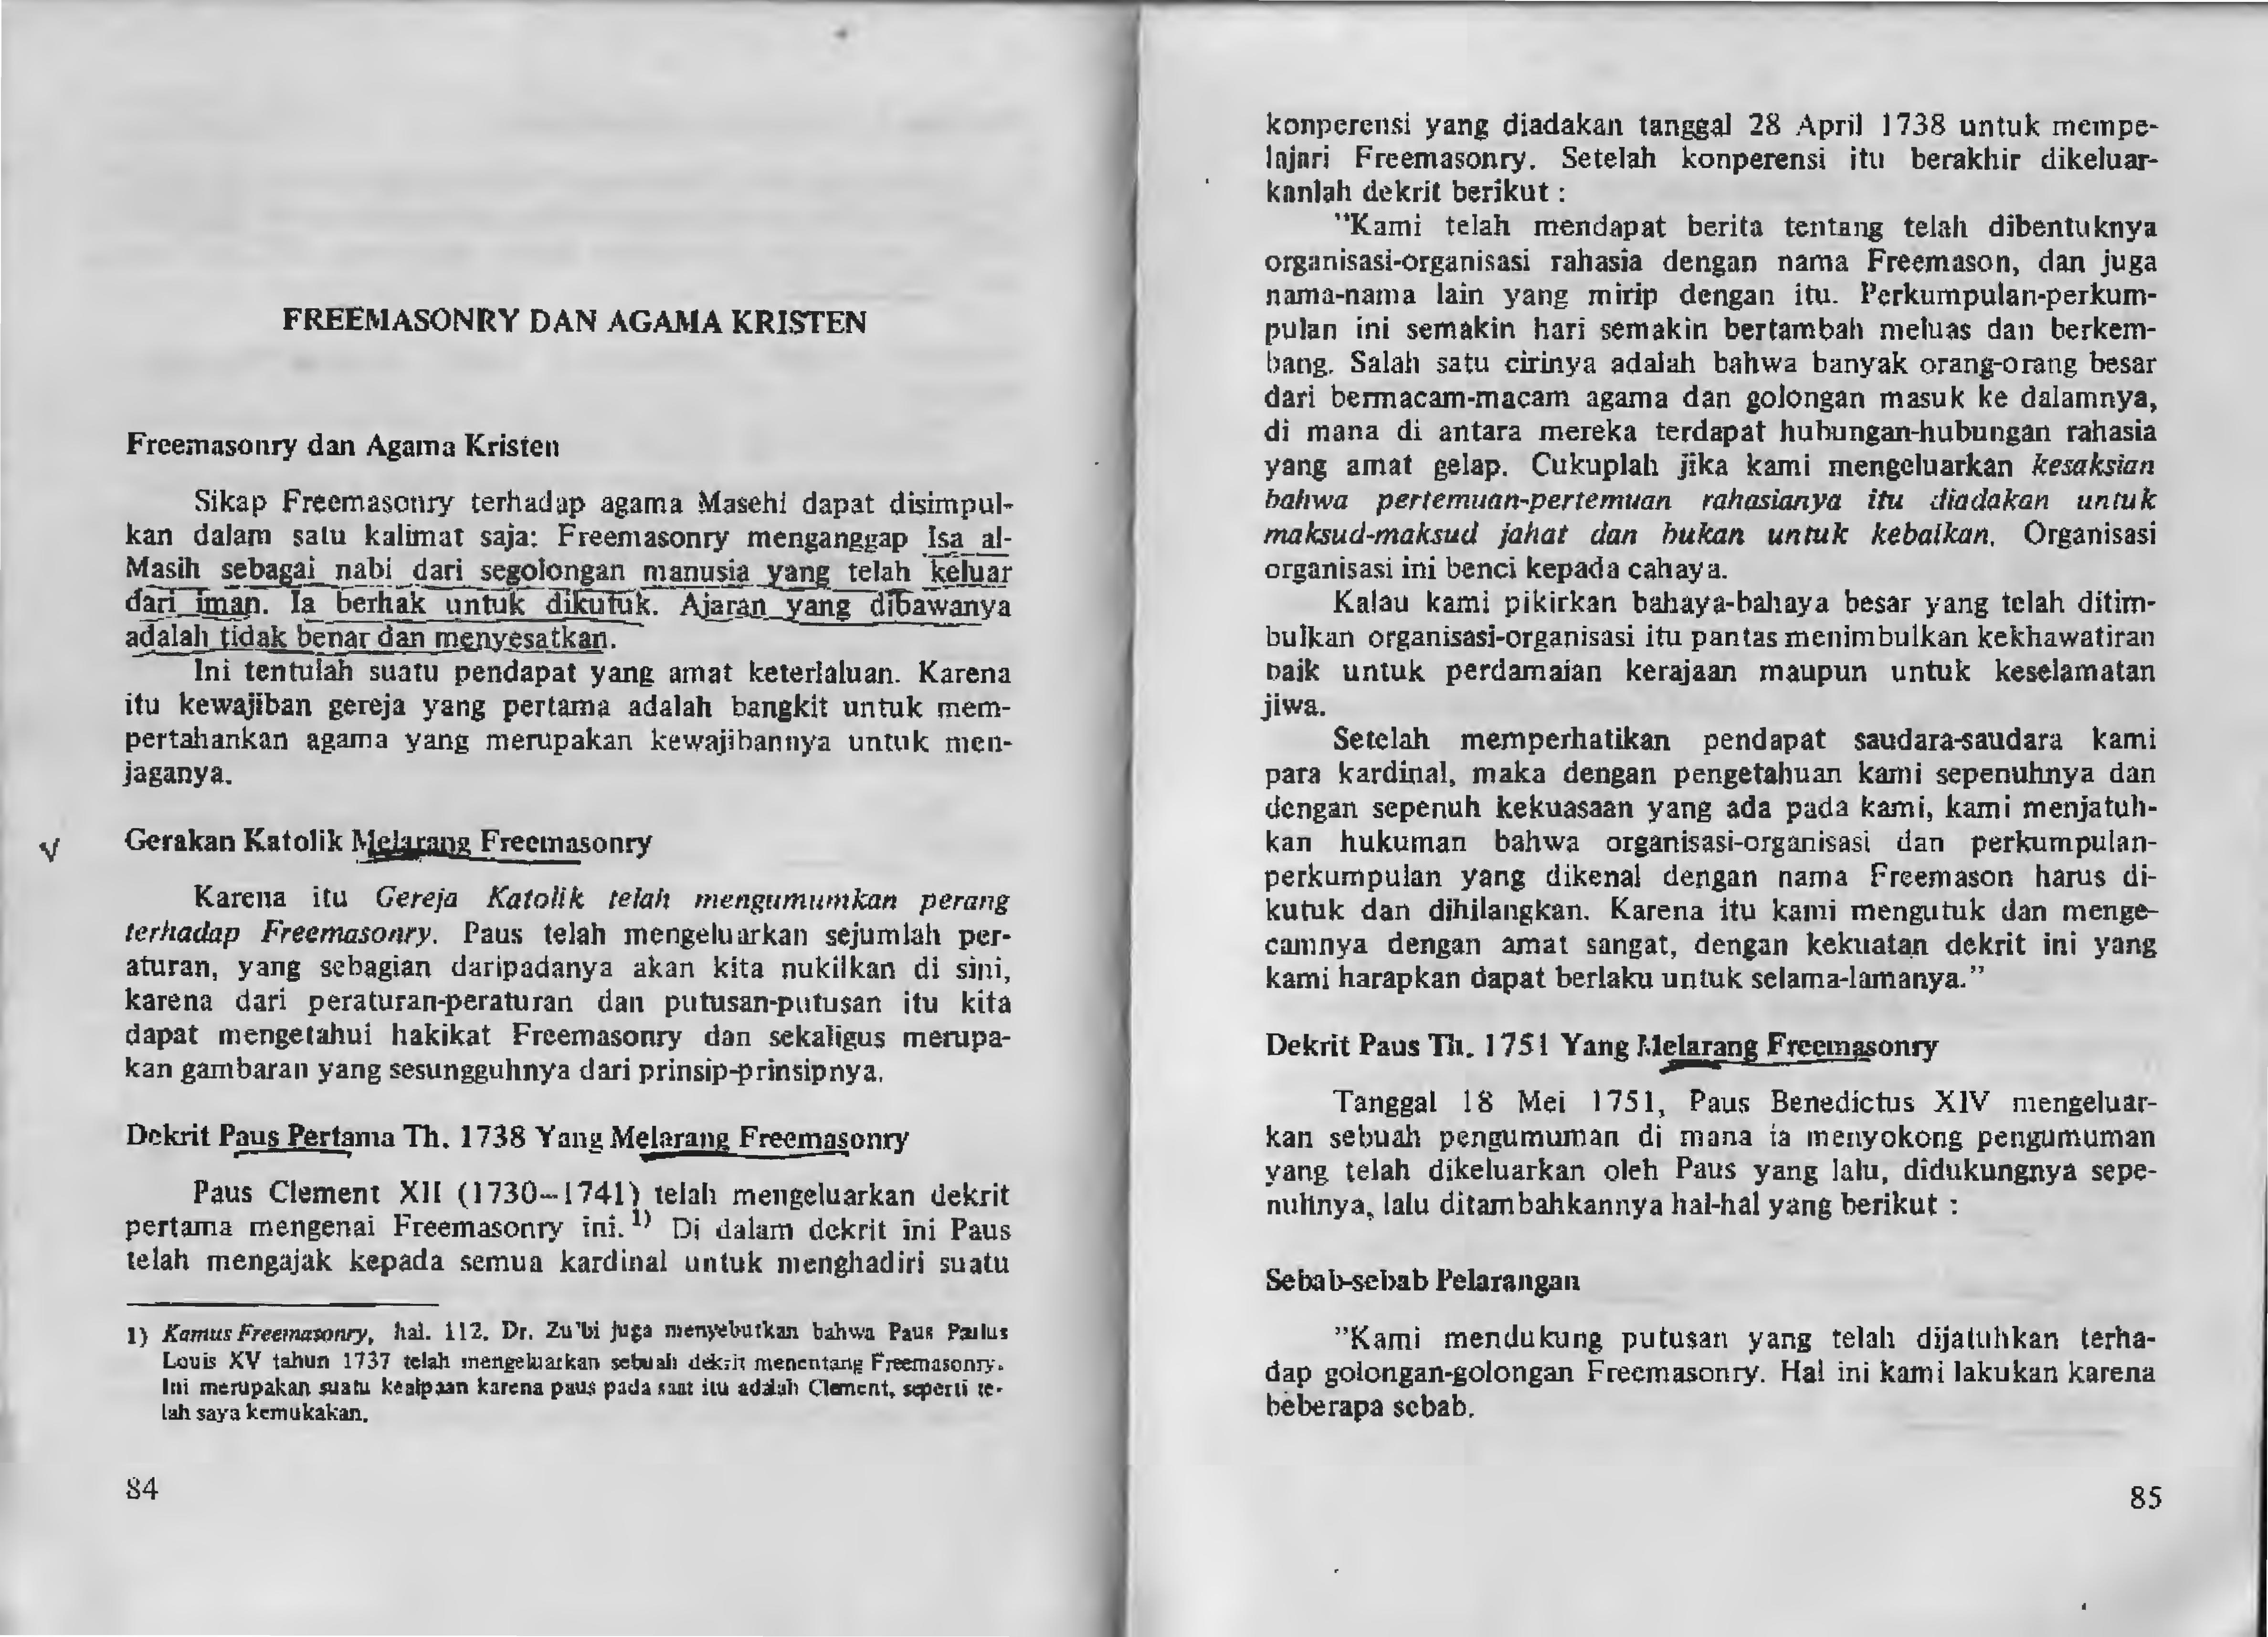 FREEMASONRY DAN AGAMA KRISTEN
Freemasonry dan Agama Kristen
Sikap Freemasonry terhadap agama Masehi dapat disimpul-
kan dalam satu kalimat saja: Freemasonry menganggap Isa al-
Masih sebagai nabi dari segolongan manusia yang telah keluar
dari iman. Ia berhak untuk dikutuk. Ajaran yang dibawanya
adalah tidak benar dan menyesatkan.
Ini tentulah suatu pendapat yang amat keterlaluan. Karena
itu kewajiban gereja yang pertama adalah bangkit untuk mem-
pertahankan agama yang merupakan kewajibannya untuk men-
jaganya.
Gerakan Katolik Melarang Freemasonry
Karena itu Gereja Katolik telah mengumumkan perang
terhadap Freemasonry. Paus telah mengeluarkan sejumlah per-
aturan, yang sebagian daripadanya akan kita nukilkan di sini,
karena dari peraturan-peraturan dan putusan-putusan itu kita
dapat mengetahui hakikat Freemasonry dan sekaligus merupa-
kan gambaran yang sesungguhnya dari prinsip-prinsipnya.
Dekrit Paus Pertama Th. 1738 Yang Melarang Freemasonry
Paus Clement XII (1730-1741) telah mengeluarkan dekrit
pertama mengenai Freemasonry ini. 1) Di dalam dekrit ini Paus
telah mengajak kepada semua kardinal untuk menghadiri suatu
1) Kamus Freemasonry, hal. 112. Dr. Zu'bi juga menyebutkan bahwa Paus Paulus
Louis XV tahun 1737 telah mengeluarkan sebuah dekrit menentang Freemasonry.
Ini merupakan suatu kealpaan karena paus pada saat itu adalah Clement, seperti te-
lah saya kemukakan.
84
konperensi yang diadakan tanggal 28 April 1738 untuk mempe-
lajari Freemasonry. Setelah konperensi itu berakhir dikeluar-
kanlah dekrit berikut :
"Kami telah mendapat berita tentang telah dibentuknya
organisasi-organisasi rahasia dengan nama Freemason, dan juga
nama-nama lain yang mirip dengan itu. Perkumpulan-perkum-
pulan ini semakin hari semakin bertambah meluas dan berkem-
bang. Salah satu cirinya adalah bahwa banyak orang-orang besar
dari bermacam-macam agama dan golongan masuk ke dalamnya,
di mana di antara mereka terdapat hubungan-hubungan rahasia
yang amat gelap. Cukuplah jika kami mengeluarkan kesaksian
bahwa pertemuan-pertemuan rahasianya itu diadakan untuk
maksud-maksud jahat dan bukan untuk kebaikan. Organisasi
organisasi ini benci kepada cahaya.
Kalau kami pikirkan bahaya-bahaya besar yang telah ditim-
bulkan organisasi-organisasi itu pantas menimbulkan kekhawatiran
baik untuk perdamaian kerajaan maupun untuk keselamatan
jiwa.
Setelah memperhatikan pendapat saudara-saudara kami
para kardinal, maka dengan pengetahuan kami sepenuhnya dan
dengan sepenuh kekuasaan yang ada pada kami, kami menjatuh-
kan hukuman bahwa organisasi-organisasi dan perkumpulan-
perkumpulan yang dikenal dengan nama Freemason harus di-
kutuk dan dihilangkan. Karena itu kami mengutuk dan menge-
camnya dengan amat sangat, dengan kekuatan dekrit ini yang
kami harapkan dapat berlaku untuk selama-lamanya."
Dekrit Paus Th. 1751 Yang Melarang Freemasonry
Tanggal 18 Mei 1751, Paus Benedictus XIV mengeluar-
kan sebuah pengumuman di mana ia menyokong pengumuman
yang telah dikeluarkan oleh Paus yang lalu, didukungnya sepe-
nuhnya, lalu ditambahkannya hal-hal yang berikut :
Sebab-sebab Pelarangan
"Kami mendukung putusan yang telah dijatuhkan terha-
dap golongan-golongan Freemasonry. Hal ini kami lakukan karena
beberapa sebab.
85